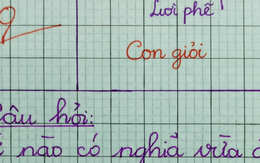 9
Lời phê
Con giỏi
câu hỏi:
nào có nghĩa vừa